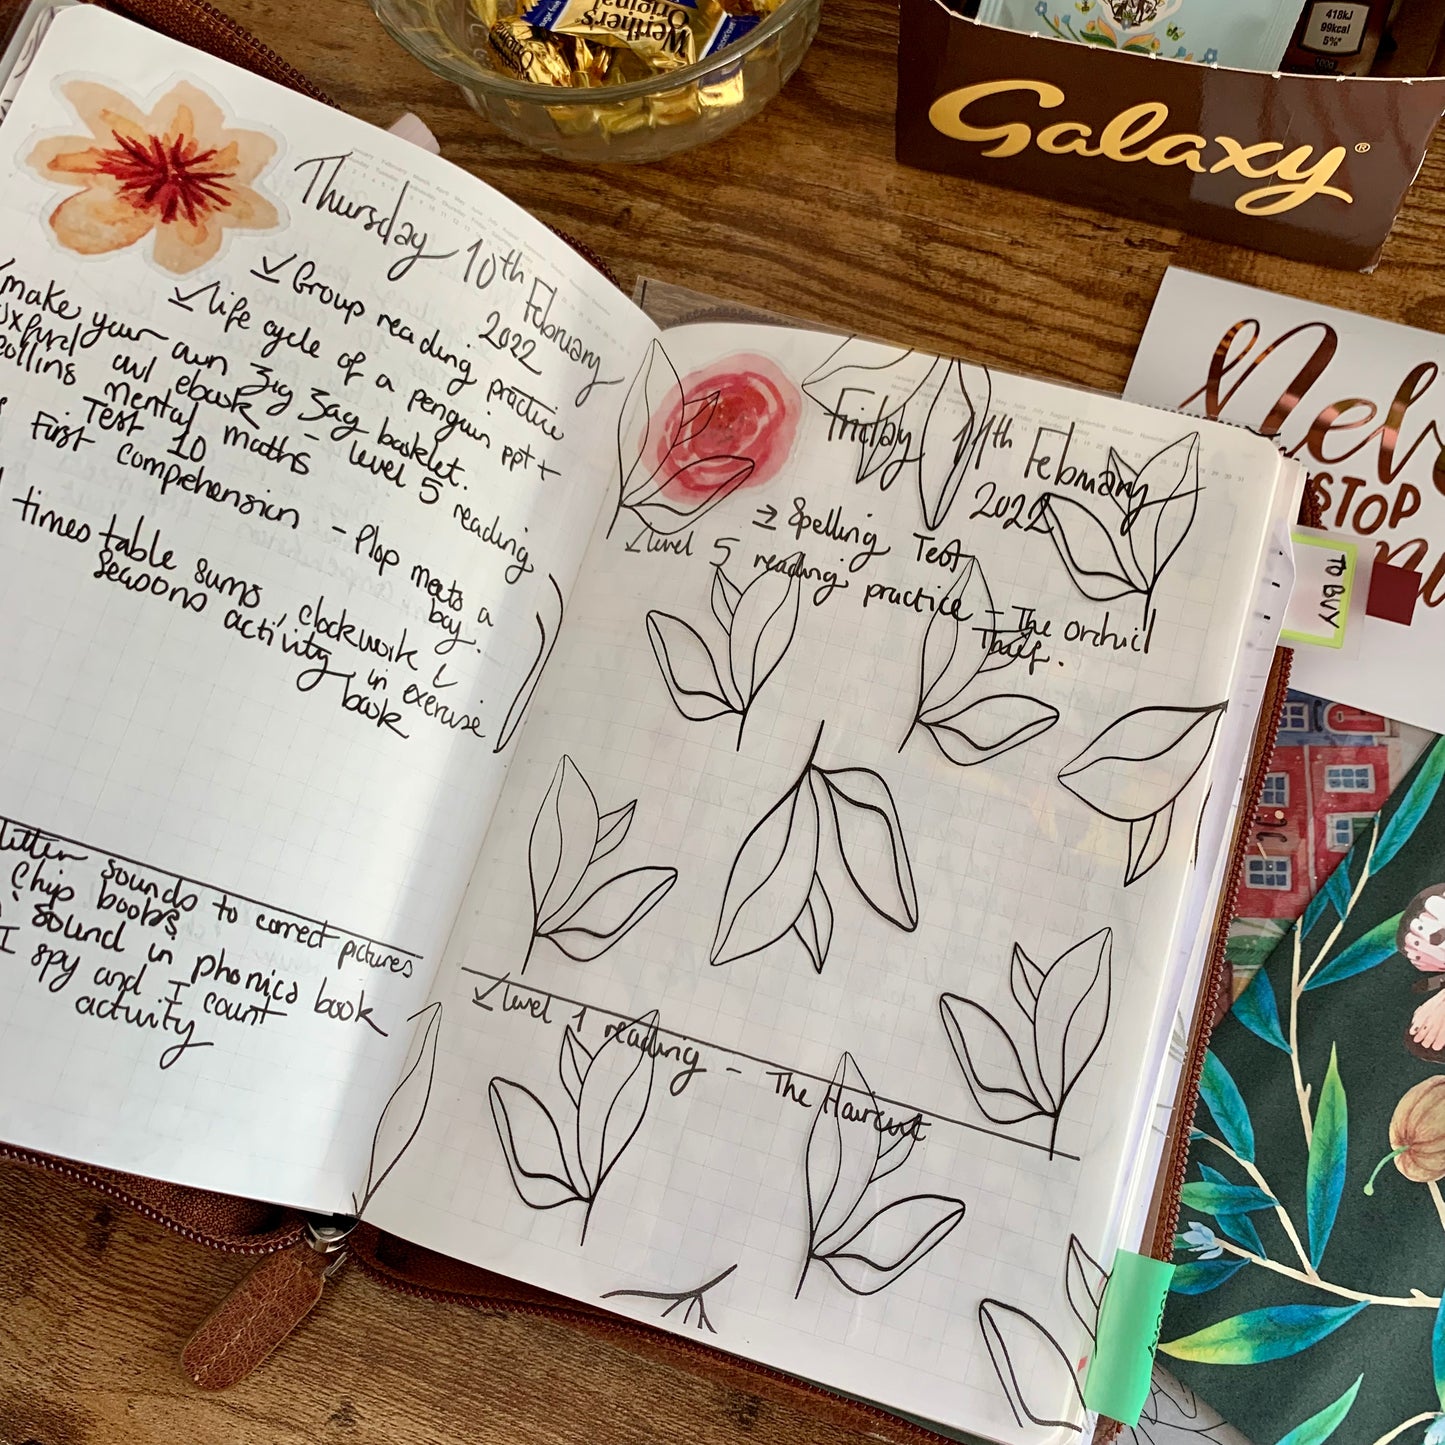 Thursday 10th
February
2022
Group reading practice
life cycle of a penguin ppt +
make your own zig zag booklet.
Oxford owl ebook - level 5 reading
Collins mental maths
Test 10
First comprehension - Plop meets a
bay.
times table sums, clockwork &
seasons activity in exercise
book
letter sounds to correct pictures
Chip books
sound in phonics book
I spy and I count
activity
Friday 11th
February
2022
→ Spelling Test
level 5 reading practice - The Orchid
Thief.
level 1 reading - The Haircut
Werther's
Original
sugar free
Galaxy®
418kJ
99kcal
5%*
STOP
TO BUY